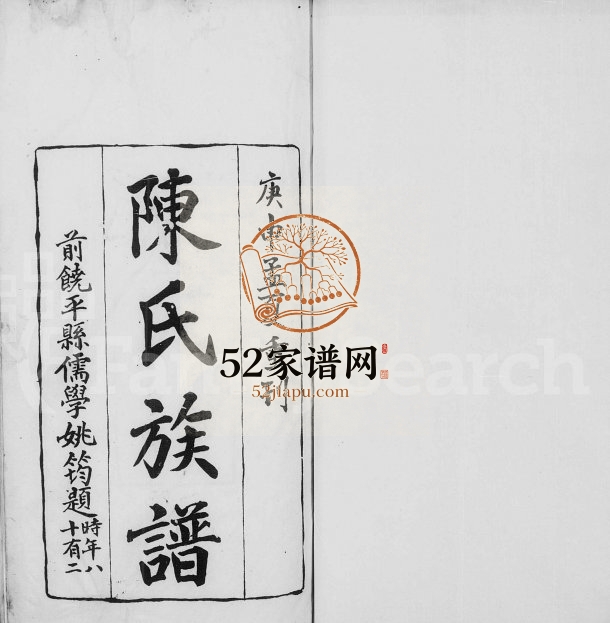 庚申孟夏重刊
陳氏族譜
前饒平縣儒學姚筠題
時年八
十有二
52家谱网
52jiapu.com
FamilySearch